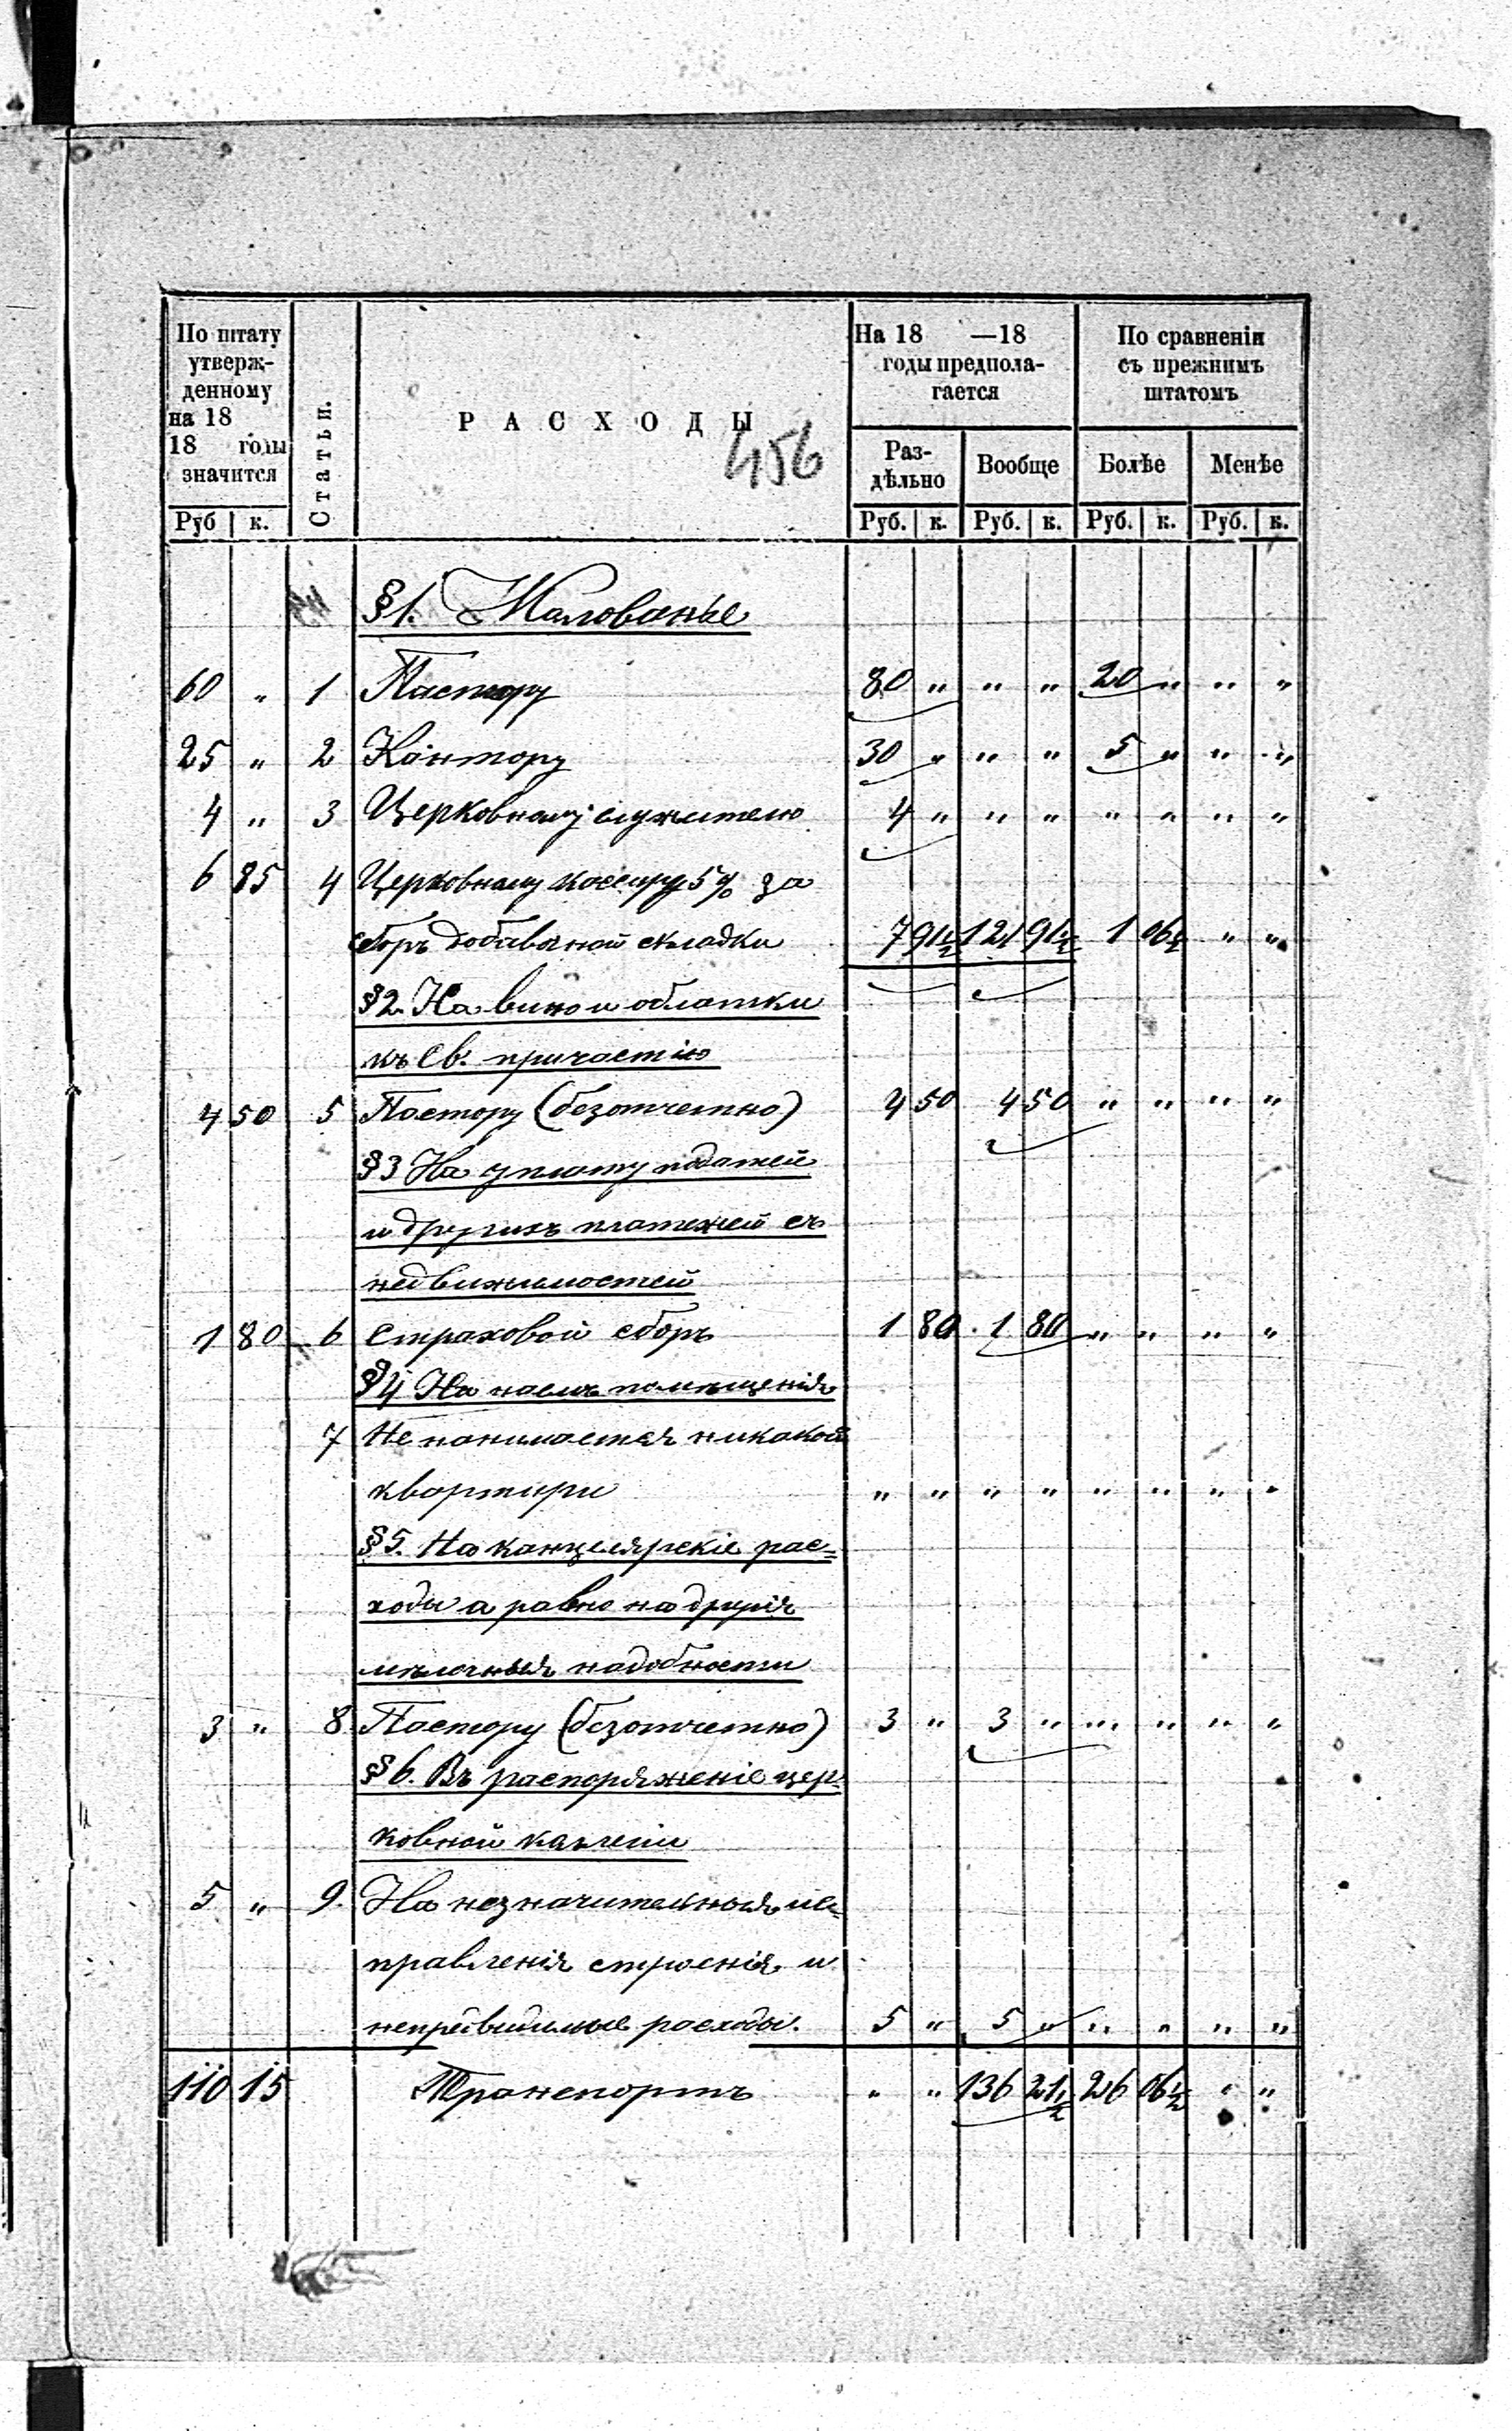 По штату утверж-денному на 18 18 годы значится
Статьи.
РАСХОДЫ
456
На 18 —18 годы предпола-гается
По сравненіи съ прежнимъ штатомъ
Раз-дѣльно Вообще Болѣе Менѣе
Руб к. Руб. к. Руб. к. Руб. к. Руб. к.
§ 1. Жалованье
60 „ 1 Пастору 80 „ „ „ 20 „ „ „
25 „ 2 Кантору 30 „ „ „ 5 „ „ „
4 „ 3 Церковному служителю 4 „ „ „ „ „ „ „
6 85 4 Церковному кассиру 5% за
сборъ добавочной складки 7 91½ 121 91½ 1 06½ „ „
§ 2. На вино и облатки
къ Св. причастію
4 50 5 Пастору (безотчетно) 4 50 4 50 „ „ „ „
§ 3 На уплату податей
и другихъ платежей съ
недвижимостей
1 80 6 Страховой сборъ 1 80 1 80 „ „ „ „
§ 4 На наемъ помѣщенія
7 Не нанимается никакой
квартири „ „ „ „ „ „ „ „
§ 5. На канцелярскіе рас=
ходы а равно на другія
мѣлочныя надобности
3 „ 8 Пастору (безотчетно) 3 „ 3 „ „ „ „ „
§ 6. Въ распоряженіе цер-
ковной
5 „ 9. На незначительныя ис=
правленія строенія и
непредвидимые расходы. 5 „ 5 „ „ „ „ „
110 15 Транспортъ „ „ 136 21½ 26 06½ „ „